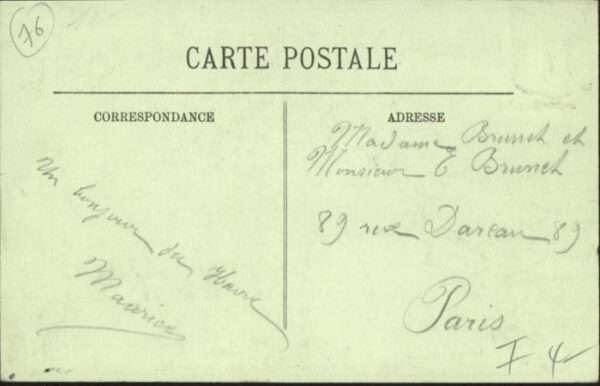 76
CARTE POSTALE
CORRESPONDANCE
ADRESSE
Madame Brunet et
Monsieur E Brunet
Un bonjour du Havre
Maurice
89 rue Dareau 89
Paris
F 4